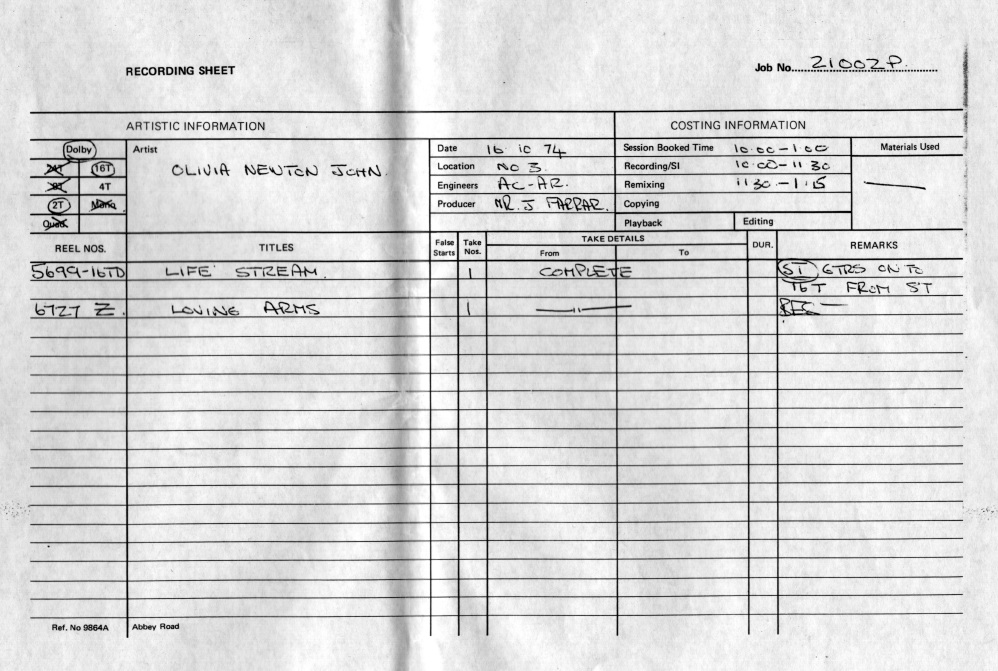 RECORDING SHEET
Job No. 21002P.
ARTISTIC INFORMATION
COSTING INFORMATION
Dolby
24T 16T
8T 4T
2T Mono
Quad.
Artist
OLIVIA NEWTON JOHN.
Date 16 10 74
Location NO 3.
Engineers AC-AR.
Producer MR. J FARRAR.
Session Booked Time 10.00-1.00
Recording/SI 10.00-11 30
Remixing 11 30-1.15
Copying
Playback Editing
Materials Used
REEL NOS. TITLES False Starts Take Nos. TAKE DETAILS From To DUR. REMARKS
5699-16TD LIFE STREAM. 1 COMPLETE SI GTRS ON TO
16T FROM ST
6727 Z. LOVING ARMS 1 —"— REC —
Ref. No 9864A Abbey Road